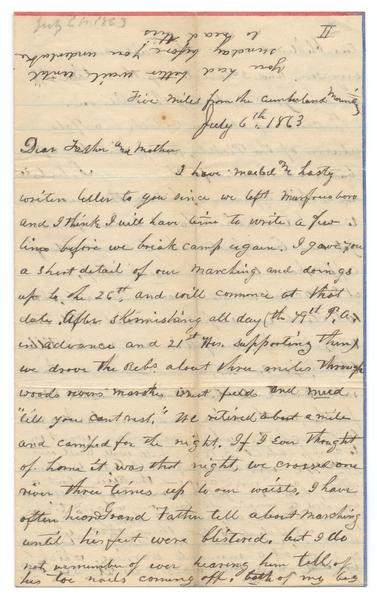 July 6th 1863
II
you had better wait until
sunday before you undertake
to read this
Five miles from the Cumberland Mountains
July 6th 1863
Dear Father and Mother
I have mailed one hasty
writen letter to you since we left Murfreesboro
and I think I will have time to write a few
lines before we break camp again. I gave you
a short detail of our marching and doings
up to the 26th, and will commence at that
date. After skirmishing all day (the 79th P.A.
in advance and 21st Wis. supporting them)
we drove the Rebs about three miles through
woods rivers marshes wheat fields and mud
"till you cant rest." We retired about a mile
and camped for the night. If I ever thought
of home it was that night, we crossed one
river three times up to our waists. I have
often heard Grand Father tell about marching
until his feet were blistered. but I do
not remember of ever hearing him tell of
his toe nails coming off. both of my big